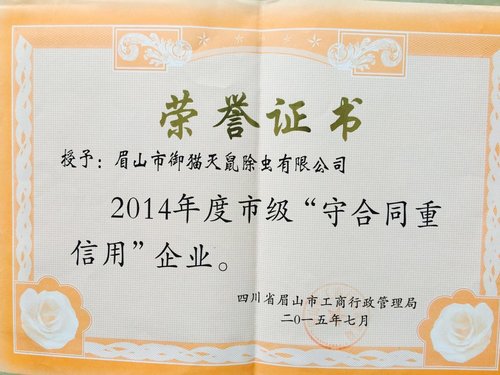 荣誉证书
授予：眉山市御猫天鼠除虫有限公司
2014年度市级“守合同重
信用”企业。
四川省眉山市工商行政管理局
二〇一五年七月